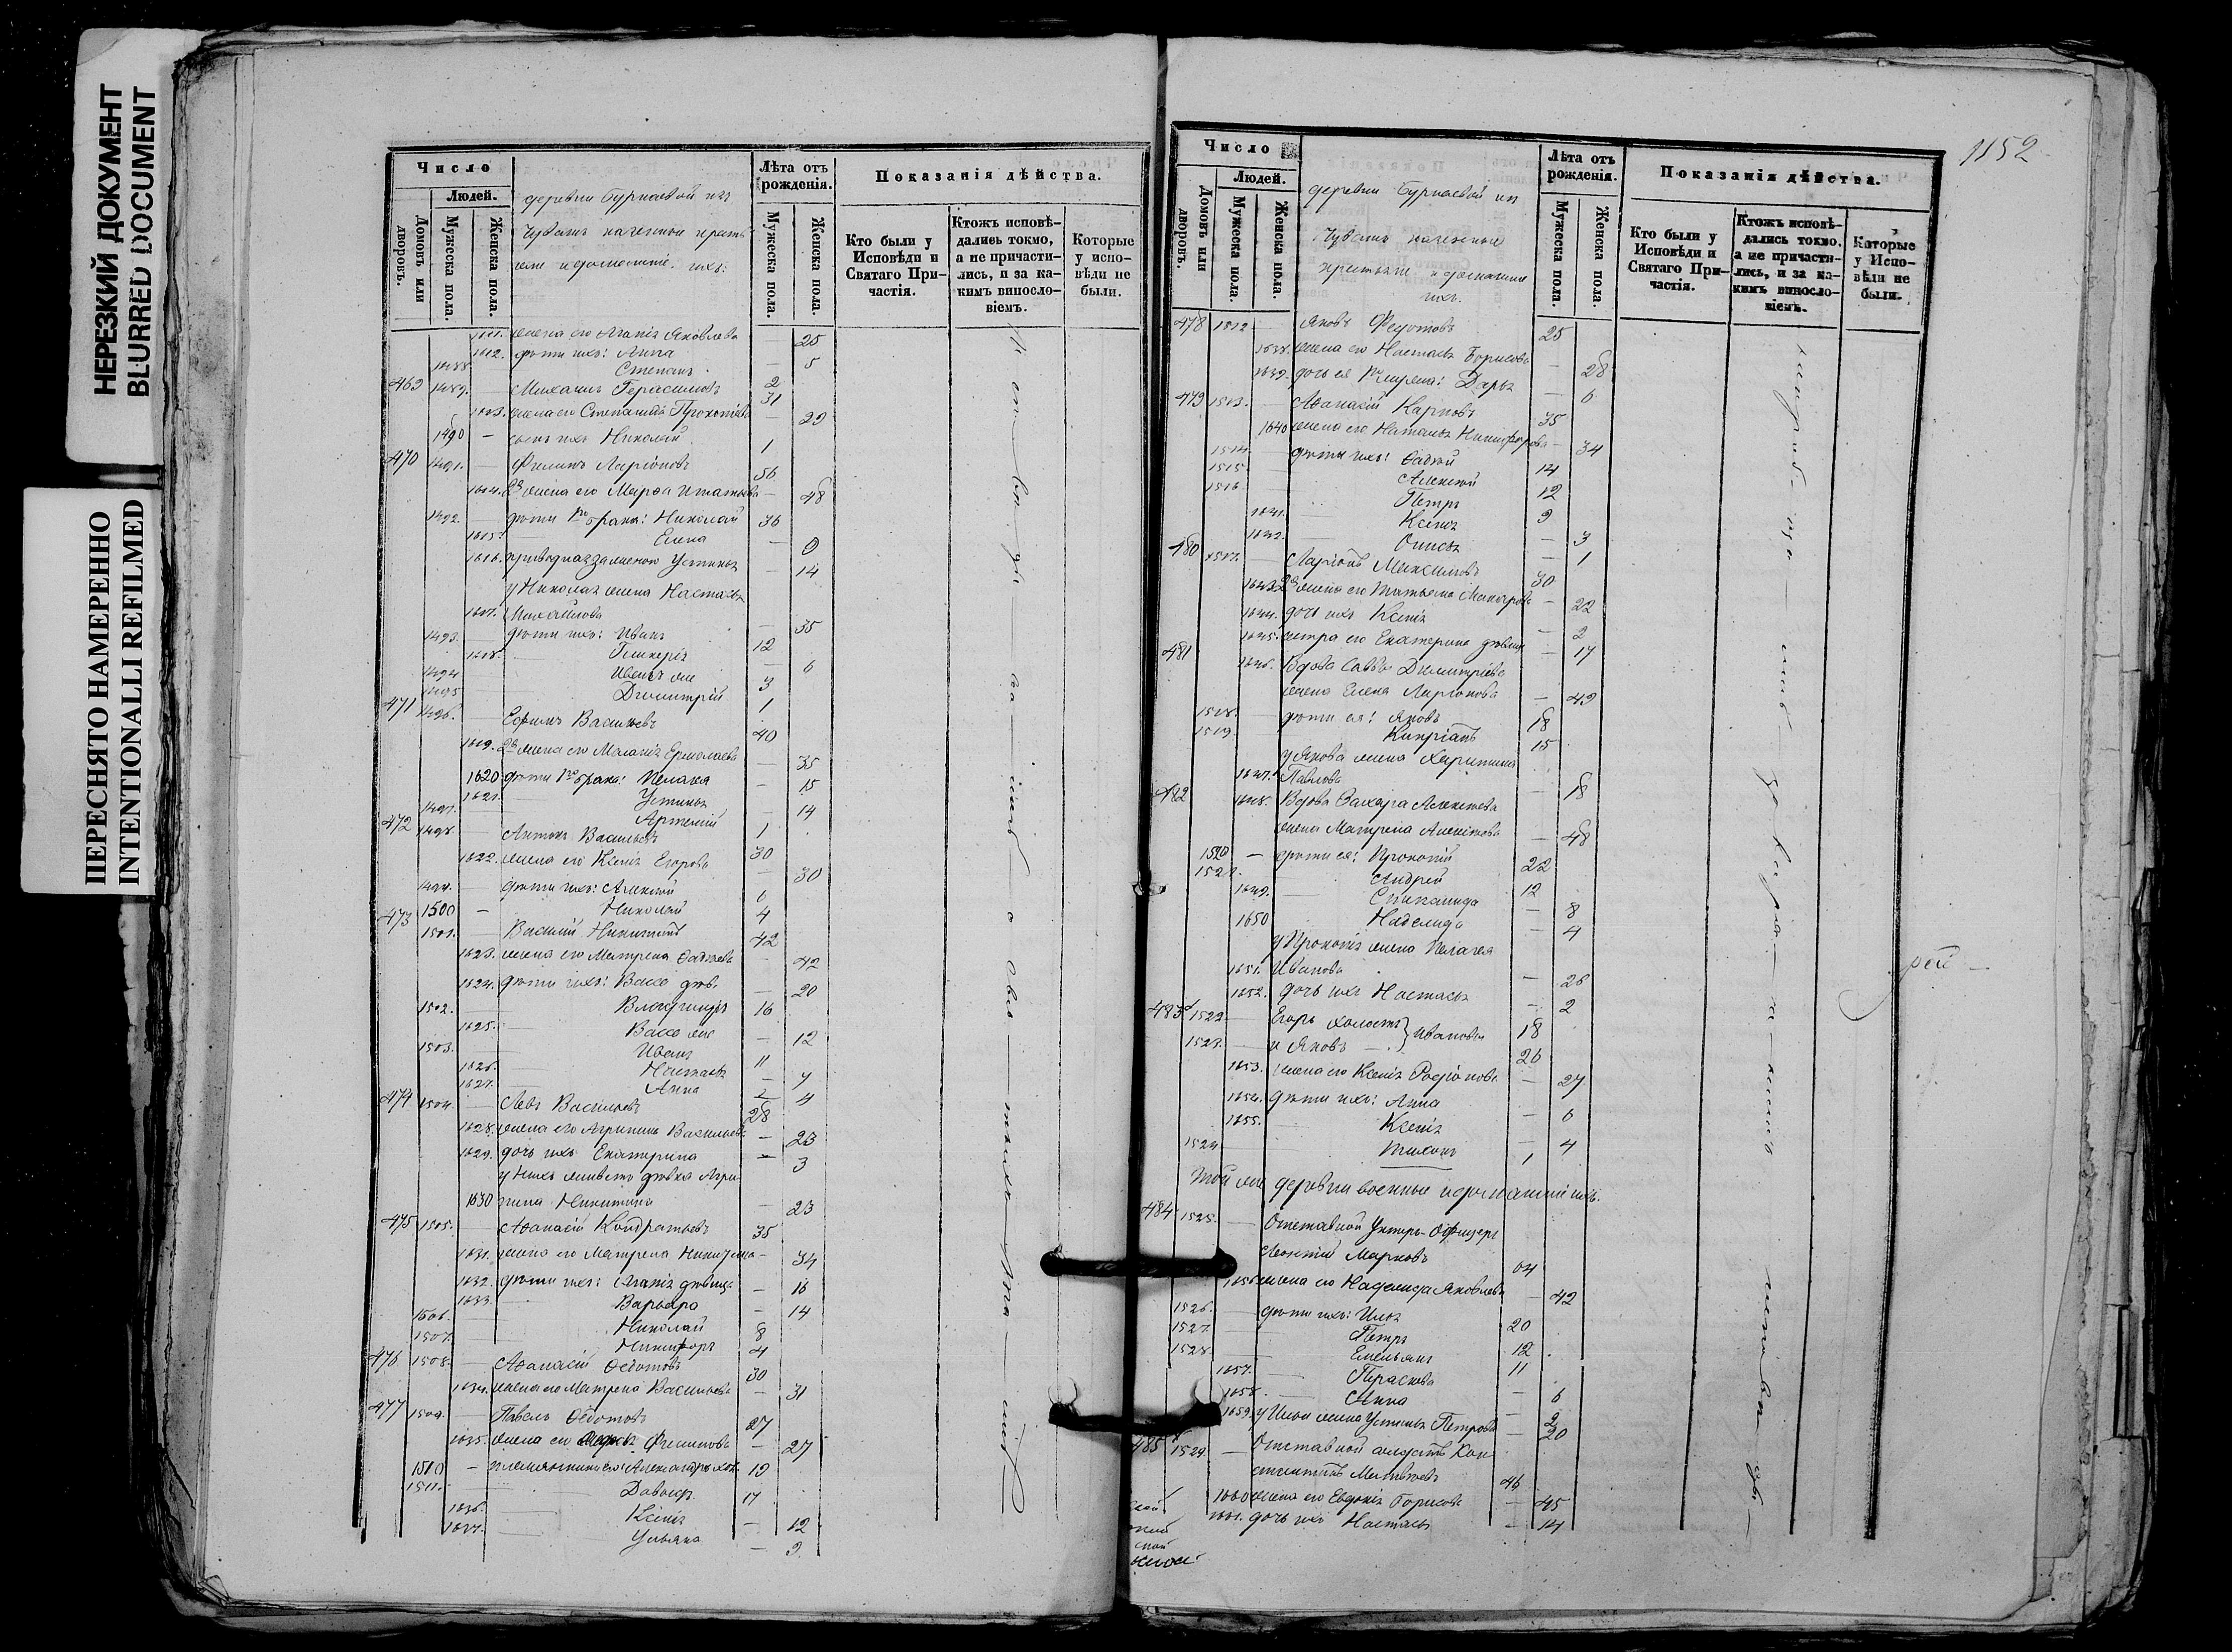 НЕРЕЗКИЙ ДОКУМЕНТ
BLURRED DOCUMENT
ПЕРЕСНЯТО НАМЕРЕННО
INTENTIONALLI REFILMED
Число
Людей.
Домовъ или дворовъ.
Мужеска пола.
Женска пола.
деревни Бурнаевой изъ
Чувашъ казенные кресть
яне и домашніе ихъ:
Лѣта отъ рожденія.
Мужеска пола.
Женска пола.
Показанія дѣйства.
Кто были у Исповѣди и Святаго Причастія.
Ктожъ исповѣдались токмо, а не причастились, и за какимъ винословіемъ.
Которые у исповѣди не были.
1611. жена его Агапія Яковлева — 25
1612. дѣти ихъ: Анна — 5
1488. Степанъ 2
469 1489. — Михаилъ Герасимовъ 31
1613. жена его Степанида Прокопіева — 29
1490 — сынъ ихъ Николай 1
470 1491. — Филипъ Ларіоновъ 56
1614. 2я жена его Марѳа Игнатьева — 48
1492. — дѣти 1го брака: Николай 36
1615. — Елена — 9
1616. Устинья — 14
у Николая жена Настасья
1617. Михайлова — 35
1493. — дѣти ихъ: Иванъ 12
1618. — Гликерія — 6
1494 Иванъ же 3
1495 Димитрій 1
471 1496. — Ефимъ Васильевъ 40
1619. 2я жена его Меланія Ермолаева — 35
1620 дѣти 1го брака: Пелагея — 15
1621. Устинья — 14
1497. Артемій 1
472 1498. — Антонъ Васильевъ 30
1622. жена его Ксенія Егорова — 30
1499. — дѣти ихъ: Алексѣй 6
1500 — Николай 4
473 1501. — Василій Никитинъ 42
1623. жена его Матрена Ѳадѣева — 42
1624. дѣти ихъ: Васса дѣв. — 20
1502. — Владимиръ 16
1625. — Васса же — 12
1503. Иванъ 11
1626. — Настасья — 7
1627. — Анна — 4
474 1504. — Левъ Васильевъ 28
1628. жена его Агрипина Васильева — 23
1629. дочь ихъ Екатерина — 3
у нихъ живетъ дѣвка Агри
1630 пина Никитина — 23
475 1505. — Аѳанасій Кондратьевъ 35
1631. жена его Матрена Никитина — 34
1632. дѣти ихъ: Агапія дѣвица — 16
1633. — Варвара — 14
1506. — Николай 8
1507. — Никифоръ 4
476 1508. — Аѳанасій Ѳедотовъ 30
1634. жена его Матрена Васильева — 31
477 1509. — Павелъ Ѳедотовъ 27
1635. жена его Филипова — 27
1510 — племянники его: Александръ хол. 19
1511. Давыдъ 17
1636. — Ксенія — 12
1637. — Ульяна — 9.
1152
Число
Людей.
Домовъ или дворовъ.
Мужеска пола.
Женска пола.
деревни Бурнаевой изъ
Чувашъ казенные
крестьяне и домашніе
ихъ.
Лѣта отъ рожденія.
Мужеска пола.
Женска пола.
Показанія дѣйства.
Кто были у Исповѣди и Святаго Причастія.
Ктожъ исповѣдались токмо, а не причастились, и за какимъ винословіемъ.
Которые у Исповѣди не были.
478 1512 — Яковъ Федотовъ 25
1638. жена его Настасья Борисова — 28
1639. дочь ея 1го мужа: Дарья — 6
479 1513. — Аѳанасій Карповъ 35
1640 жена его Наталья Никифорова — 34
1514. — дѣти ихъ: Ѳадѣй 14
1515. — Алексѣй 12
1516. — Петръ 9
1641. Ксенія — 3
1642. — Онисья — 1
480 1517. — Ларіонъ Максимовъ 30
1643. 2я жена его Татьяна Макарова — 22
1644. дочь ихъ Ксенія — 2
1645. сестра его Екатерина дѣвица — 17
481 1646. Вдова Савва Димитріева
жена Елена Ларіонова — 49
1518. — дѣти ея: Яковъ 18
1519. Кипріанъ 15
у Якова жена Харитина
1647. Павлова — 18
482 1648. Вдова Захара Алексѣева
жена Матрена Алексѣева — 48
1520 — дѣти ея: Прокопій 22
1521. Андрей 12
1649. — Степанида — 8
1650 Надежда — 4
у Прокопія жена Пелагея
1651. Иванова — 26
1652. дочь ихъ Настасья — 2
483 1522 — Егоръ холостъ } Ивановы 18
1523. — и Яковъ — 26
1653. жена его Ксенія Родіонова — 27
1654. дѣти ихъ: Анна — 6
1655. Ксенія — 4
1524 Тихонъ 1
Той же деревни военные и домашніе ихъ.
484 1525. — Отставной Унтеръ-Офицеръ
Леонтій Марковъ 64
1656 жена его Надежда Яковлева — 42
1526. — дѣти ихъ: Илья 20
1527. — Петръ 12
1528. — Емельянъ 11
1657. — Параскева — 6
1658. — Анна — 2
1659. у Ильи жена Устинья Петрова — 20
485 1529. — Отставной солдатъ Кон
стантинъ Матвѣевъ 46
1660 жена его Евдокія Борисова — 45
1661. дочь ихъ Настасья — 14
рей —